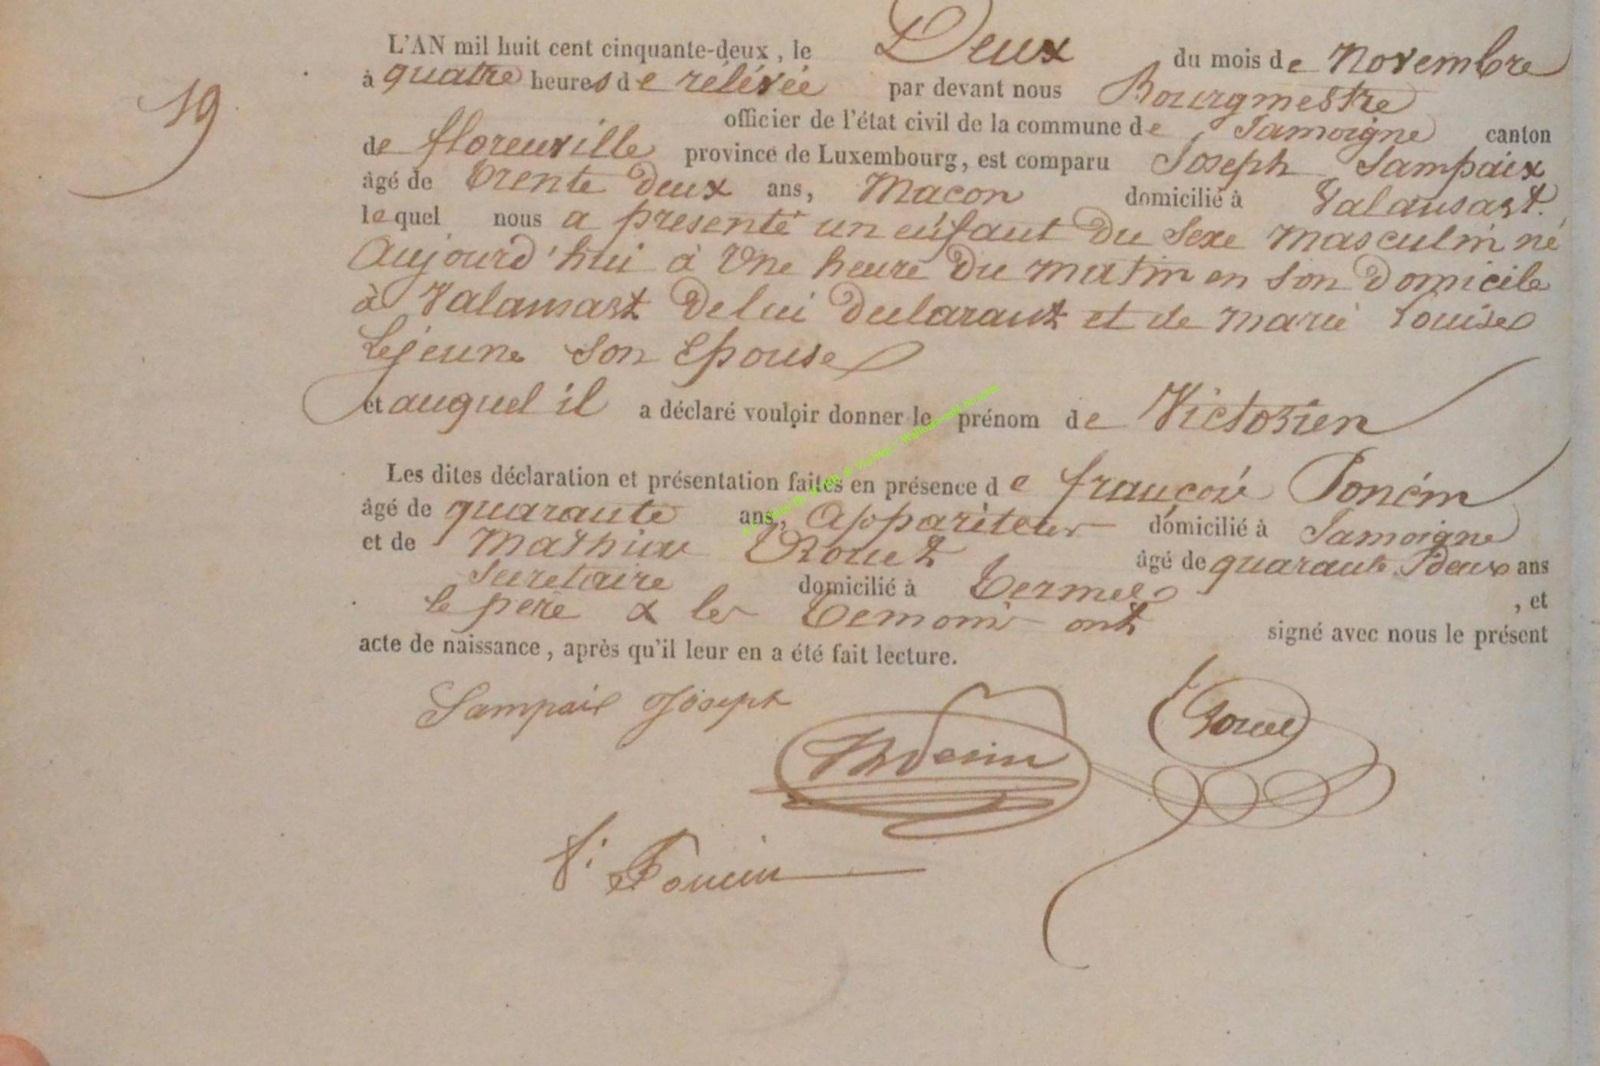 L'AN mil huit cent cinquante-deux, le Deux du mois de Novembre
à quatre heures de rélévée par devant nous Bourgmestre
19
officier de l'état civil de la commune de Jamoigne canton
de florenville province de Luxembourg, est comparu Joseph Sampaix
âgé de trente deux ans, Macon domicilié à Valansart.
lequel nous a presenté un enfant du sexe masculin né
Aujourd'hui à Une heure du matin en son domicile
à Valansart de lui declarant et de marie Louise
Lejeune son Epouse
et auquel il a déclaré vouloir donner le prénom de Victorien
Les dites déclaration et présentation faites en présence de françois Poncin
âgé de quarante ans, appariteur domicilié à Jamoigne
et de Mathieu Rouet âgé de quarante deux ans
secretaire domicilié à Termes , et
le pere & les temoins ont signé avec nous le présent
acte de naissance, après qu'il leur en a été fait lecture.
Sampaix Joseph
f: Poncin